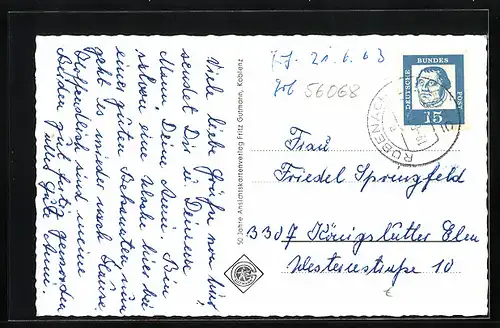 Viele liebe Grüße von hier
sendet Dir u. Deinem
Mann, Deine Anni. Bin
schon eine Woche hier bei
einer guten Bekannten, nun
geht es wieder nach Hause.
Hoffentlich sind meine
Bilder gut fertig geworden
Alles Gute Anni.
50 Jahre Ansichtskartenverlag Fritz Gutmann, Koblenz
21.6.63
56068
DEUTSCHE BUNDES POST
15
RÜBENACH
Frau
Friedel Springfeld
3307 Königslutter Elm
Westernstraße 10